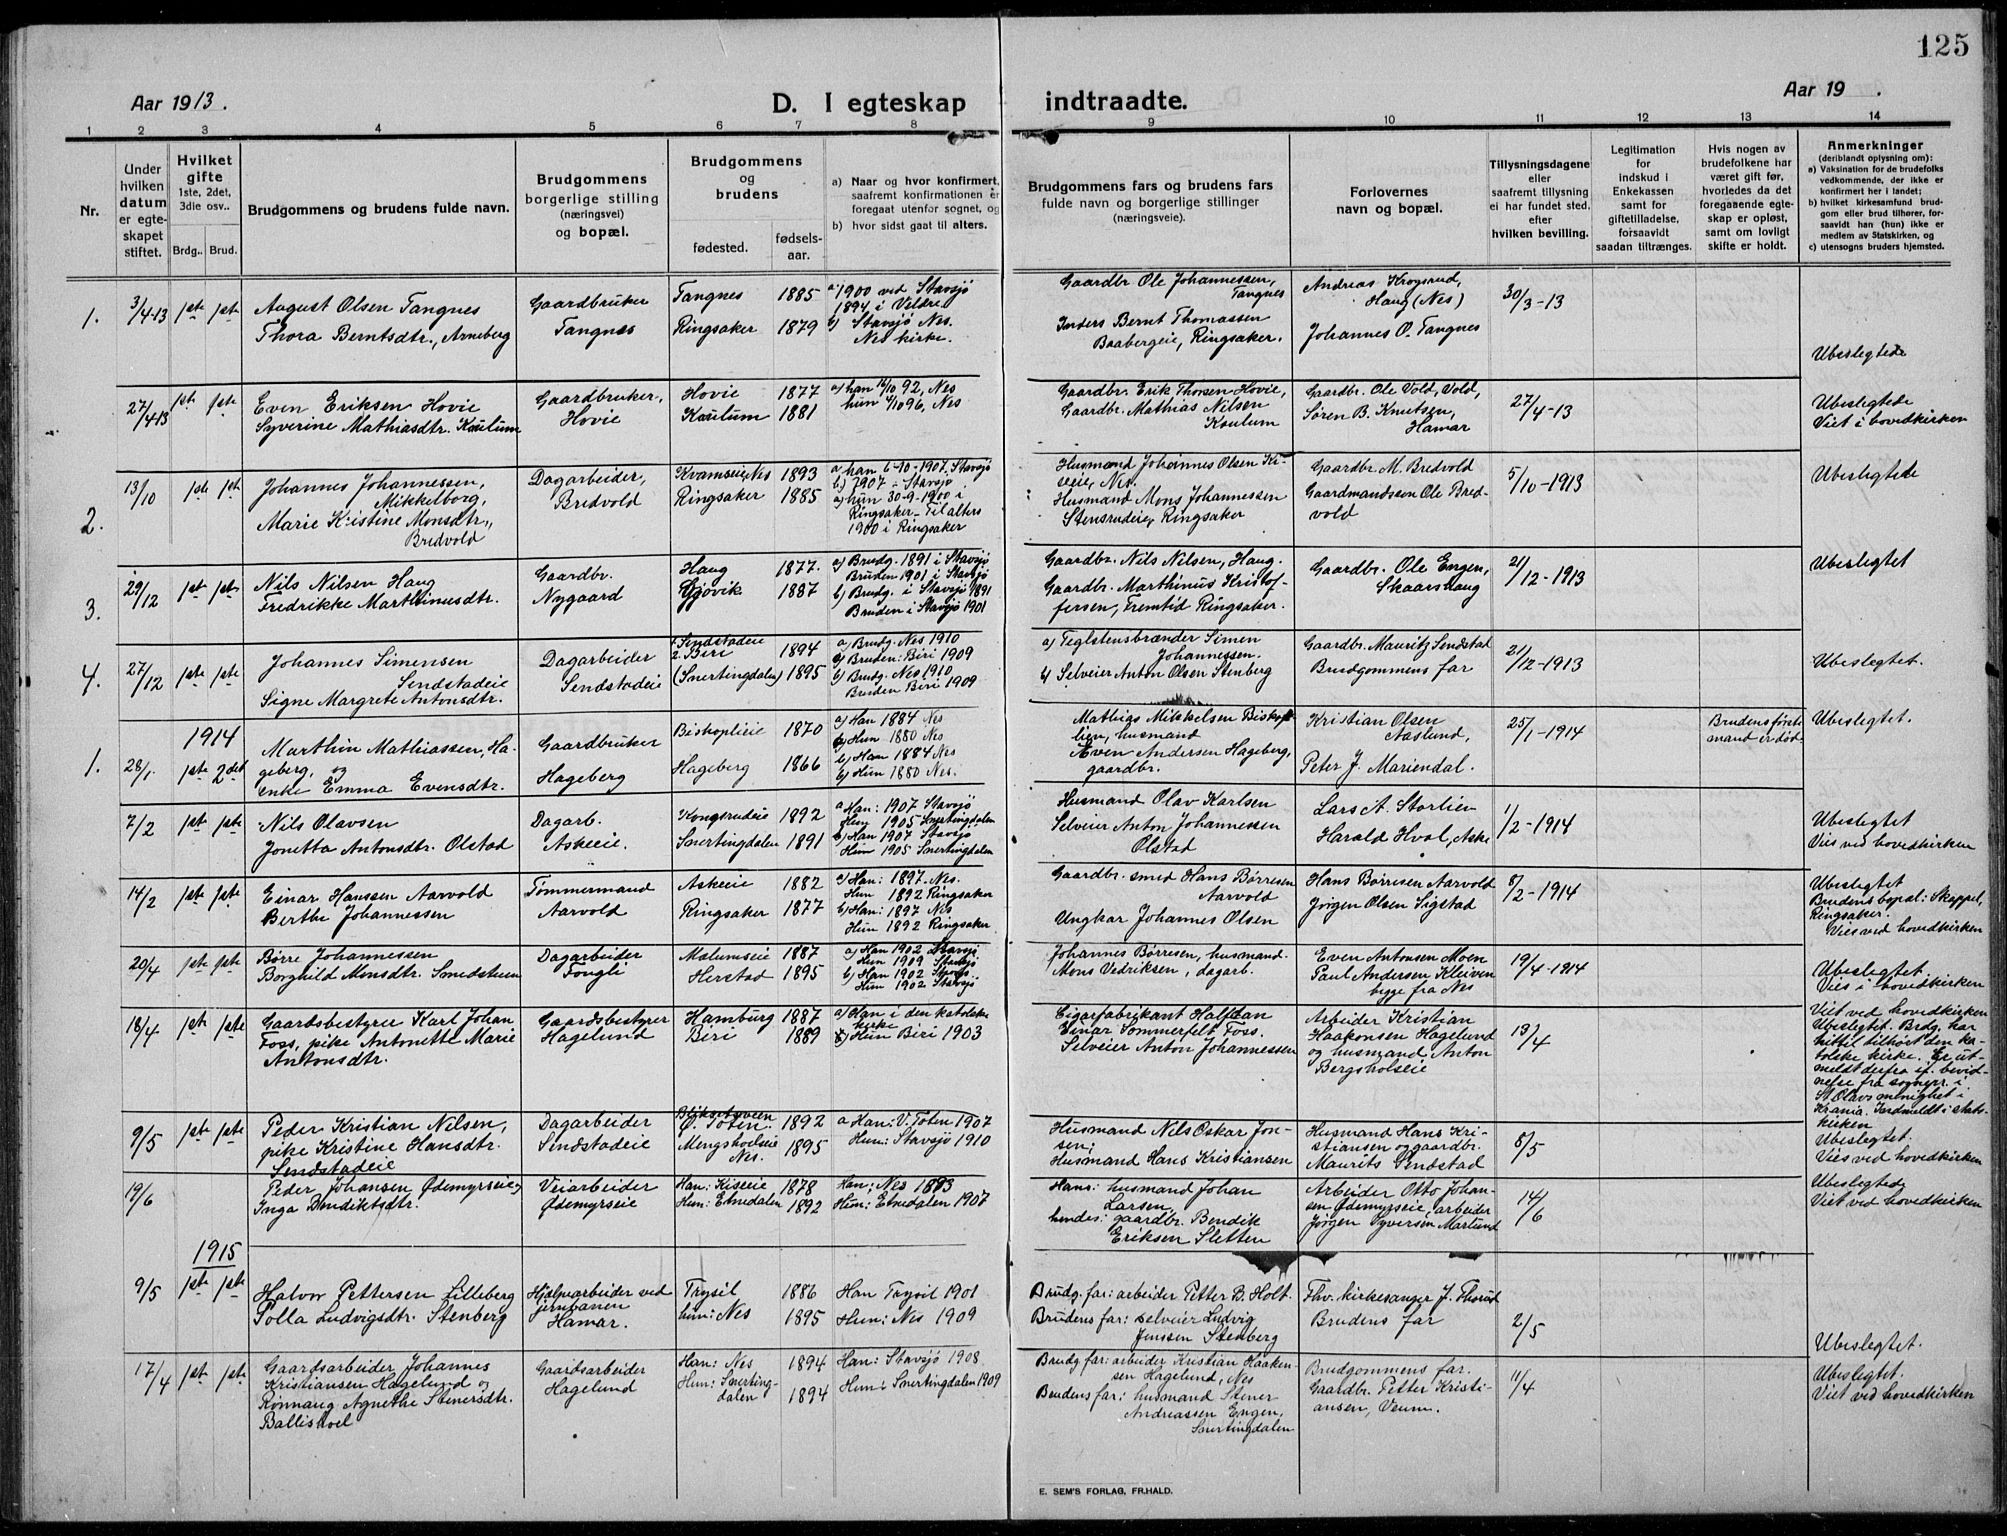 125
Aar 1913.
D. I egteskap indtraadte.
Aar 19 .
1 2 3 4 5 6 7 8 9 10 11 12 13 14
Nr.
Under hvilken datum er egteskapet stiftet.
Hvilket gifte
1ste, 2det, 3die osv..
Brdg.. Brud.
Brudgommens og brudens fulde navn.
Brudgommens borgerlige stilling (næringsvei) og bopæl.
Brudgommens og brudens
fødested.
fødselsaar.
a) Naar og hvor konfirmert, saafremt konfirmationen er foregaat utenfor sognet, og
b) hvor sidst gaat til alters.
Brudgommens fars og brudens fars fulde navn og borgerlige stillinger (næringsveie).
Forlovernes navn og bopæl.
Tillysningsdagene eller saafremt tillysning ei har fundet sted, efter hvilken bevilling.
Legitimation for indskud i Enkekassen samt for giftetilladelse, forsaavidt saadan tiltrænges.
Hvis nogen av brudefolkene har været gift før, hvorledes da det foregaaende egteskap er opløst, samt om lovligt skifte er holdt.
Anmerkninger
(deriblandt oplysning om):
a) Vaksination for de brudefolks vedkommende, der ikke er konfirmert her i landet;
b) hvilket kirkesamfund brudgom eller brud tilhører, forsaavidt han (hun) ikke er medlem av Statskirken, og
c) utensogns bruders hjemsted.
1. 3/4-13 1ste 1ste
August Olsen Tangnes
Thora Berntsdtr., Arneberg
Gaardbruker
Tangnes
Tangnes 1885
Ringsaker 1879
a) 1900 ved Stavsjø
1894 i Veldre
b) Stavsjø Nes.
Nes kirke.
Gaardbr. Ole Johannessen,
Tangnes
Inders Bernt Thomassen
Baabergeie, Ringsaker.
Andreas Krogsrud,
Haug (Nes)
Johannes O. Tangnes
30/3-13
Ubeslegtede
27/4-13 1ste 1ste
Even Eriksen Hovie
Syverine Mathiasdtr. Kaulum
Gaardbruker,
Hovie
Hovie 1877
Kaulum 1881
a) han 16/10 92, Nes
hun 4/10 96, Nes
Gaardbr. Erik Thorsen Hovie,
Gaardbr. Mathias Nilsen
Koulum
Gaardbr. Ole Vold, Vold,
Søren B. Knutsen,
Hamar
27/4-13
Ubeslegtede
Viet i hovedkirken
2. 13/10 1ste 1ste
Johannes Johannessen,
Mikkelborg,
Marie Kristine Monsdtr.,
Bredvold
Dagarbeider,
Bredvold
Kvamseie, Nes 1893
Ringsaker 1885
a) han 6-10-1907. Stavsjø
b) 1907 - Stavsjø
a) hun 30-9-1900 i
Ringsaker - Til alters
1900 i Ringsaker
Husmand Johannes Olsen Kiseeie, Nes.
Husmand Mons Johannessen
Stensrudeie, Ringsaker
Gaardbr. M. Bredvold
Gaardmandssøn Ole Bredvold
5/10-1913
Ubeslegtede
3. 29/12 1ste 1ste
Nils Nilsen Haug
Fredrikke Marthinusdtr.
Gaardbr.
Nygaard
Haug 1877.
Gjøvik 1887
a) Brudg. 1891 i Stavsjø
Bruden 1901 i Stavsjø
b) Brudg. i Stavsjø 1891
Bruden i Stavsjø 1901
Gaardbr. Nils Nilsen, Haug.
Gaardbr. Marthinus Kristoffersen, Fremtid Ringsaker.
Gaardbr. Ole Engen,
Skaarshaug
21/12-1913
Ubeslegtet
4. 27/12 1ste 1ste
Johannes Simensen
Sendstadeie
Signe Margrete Antonsdtr.
Dagarbeider
Sendstadeie
1. Sendstadeie
2. Biri 1894
(Snertingdalen) 1895
a) Brudg. Nes 1910
a) Bruden: Biri 1909
b) Brudg. Nes 1910
Bruden Biri 1909
a) Teglstensbrænder Simen
Johannessen.
b) Selveier Anton Olsen Stenberg
Gaardbr. Mauritz Sendstad
Brudgommens far
21/12-1913
Ubeslegtet.
1914
1. 28/1. 1ste 2det
Marthin Mathiassen, Hageberg, og
enke Emma Evensdtr.
Gaardbruker
Hageberg
Biskoplieie 1870
Hageberg 1866
a) Han 1884 Nes
a) Hun 1880 Nes
b) Han 1884 Nes
b) Hun 1880 Nes.
Mathias Mikkelsen Biskoplien, husmand
Even Andersen Hageberg,
gaardbr.
Kristian Olsen
Aaslund,
Peter J. Mariendal.
25/1-1914
Brudens første
mand er død
Ubeslegtet.
7/2 1ste 1ste
Nils Olavsen
Jonetta Antonsdtr. Olstad
Dagarb.
Askeeie.
Kongsrudeie 1892
Snertingdalen 1891
a) Han: 1907 Stavsjø
Hun 1905 Snertingdalen
b) Han 1907 Stavsjø
Hun 1905 Snertingdalen
Husmand Olav Karlsen
Selveier Anton Johannessen
Olstad
Lars A. Storlien
Harald Hval, Aske
1/2-1914
Ubeslegtet
Vies ved hovedkirken
14/2 1ste 1ste
Einar Hanssen Aarvold
Berthe Johannessen
Tømmermand
Aarvold
Askeeie 1882
Ringsaker 1877
a) Han: 1897. Nes.
Hun 1892 Ringsaker
b) Han: 1897 Nes
Hun 1892 Ringsaker
Gaardbr. smed Hans Børresen
Aarvold
Ungkar Johannes Olsen
Hans Børresen Aarvold
Jørgen Olsen Sigstad
8/2-1914
Ubeslegtet
Brudens bopæl: Skappel,
Ringsaker.
Vies ved hovedkirken
20/4 1ste 1ste
Børre Johannessen
Borghild Monsdtr. Smedstuen
Dagarbeider
Fongli
Mælumseie 1887
Herstad 1895
a) Han 1902 Stavsjø
Hun 1909 Stavsjø
b) Han 1902 Stavsjø
Hun 1902 Stavsjø
Johannes Børresen, husmand.
Mons Vedriksen, dagarb.
Even Antonsen Moen
Paul Andersen Kleiven
begge fra Nes
19/4-1914
Ubeslegtet.
Vies i hovedkirken
18/4 1ste 1ste
Gaardsbestyrer Karl Johan
Foss, pike Antonette Marie
Antonsdtr.
Gaardsbestyrer
Hagelund
Hamburg 1887
Biri 1889
a) Han i den katolske
kirke
Hun Biri 1903
Cigarfabrikant Halfdan
Einar Sommerfelt Foss.
Selveier Anton Johannessen
Arbeider Kristian
Haakonsen Hagelund
og husmand Anton
Bergsholseie
13/4
Viet ved hovedkirken
Ubeslegtet. Brdg. har
hittil tilhørt den katolske kirke. Er utmeldt derfra if. bevidnelse fra sognepr. i
St. Olavs menighet i
Krania. Indmeldt i statskirken
9/5 1ste 1ste
Peder Kristian Nilsen,
pike Kristine Hansdtr.
Sendstadeie
Dagarbeider
Sendstadeie
Ø. Toten. 1892
Mengshoelseie 1895
Nes.
a Han: V. Toten 1907
Hun: Stavsjø 1910
Husmand Nils Oskar Jonsen;
Husmand Hans Kristiansen
Husmand Hans Kristiansen og gaardbr.
Maurits Sendstad
8/5
Ubeslegtet.
Vies ved hovedkirken
19/6
Peder Johansen Ødemyrseie,
Inga Bendiktsdtr.
Veiarbeider
Ødemyrseie
Han: Kiseeie 1878
Hun: Etnedalen 1892
Han: Nes 1893
Hun: Etnedalen 1907
Hans: husmand Johan
Larsen,
hendes: gaardbr. Bendik
Eriksen Sletten
Arbeider Otto Johansen Ødemyrseie, arbeider
Jørgen Syversen Mørlund
14/6
Ubeslegtede
Viet ved hovedkirken
1915
9/5 1ste 1ste
Halvor Pettersen Lilleberg
Polla Ludvigsdtr. Stenberg
Hjælpearbeider ved
jernbanen
Hamar.
Trysil 1886
hun: Nes 1895
Han Trysil 1901
Hun: Nes 1909
Brudg. far: arbeider Petter B. Holt.
Brudens far: selveier Ludvig
Jenssen Stenberg
Fhv. kirkesanger J. Thorud
Brudens far
2/5
Ubeslegtet.
17/4 1ste 1ste
Gaardsarbeider Johannes
Kristiansen Hagelund og
Rønnaug Agnethe Stenersdtr.
Ballishoel
Gaardsarbeider
Hagelund
Han: Nes 1894
Hun: Snertingdalen 1894
Han: Stavsjø 1908.
Hun: Snertingdalen 1909
Brudg. far: arbeider Kristian Haakensen Hagelund, Nes
Brudens far: husmand Stener
Andreassen Engen,
Snertingdalen
Brudgommens far.
Gaardbr. Petter Kristiansen, Veum.
11/4
Ubeslegtet.
Viet ved hovedkirken
E. SEM'S FORLAG, FR.HALD.